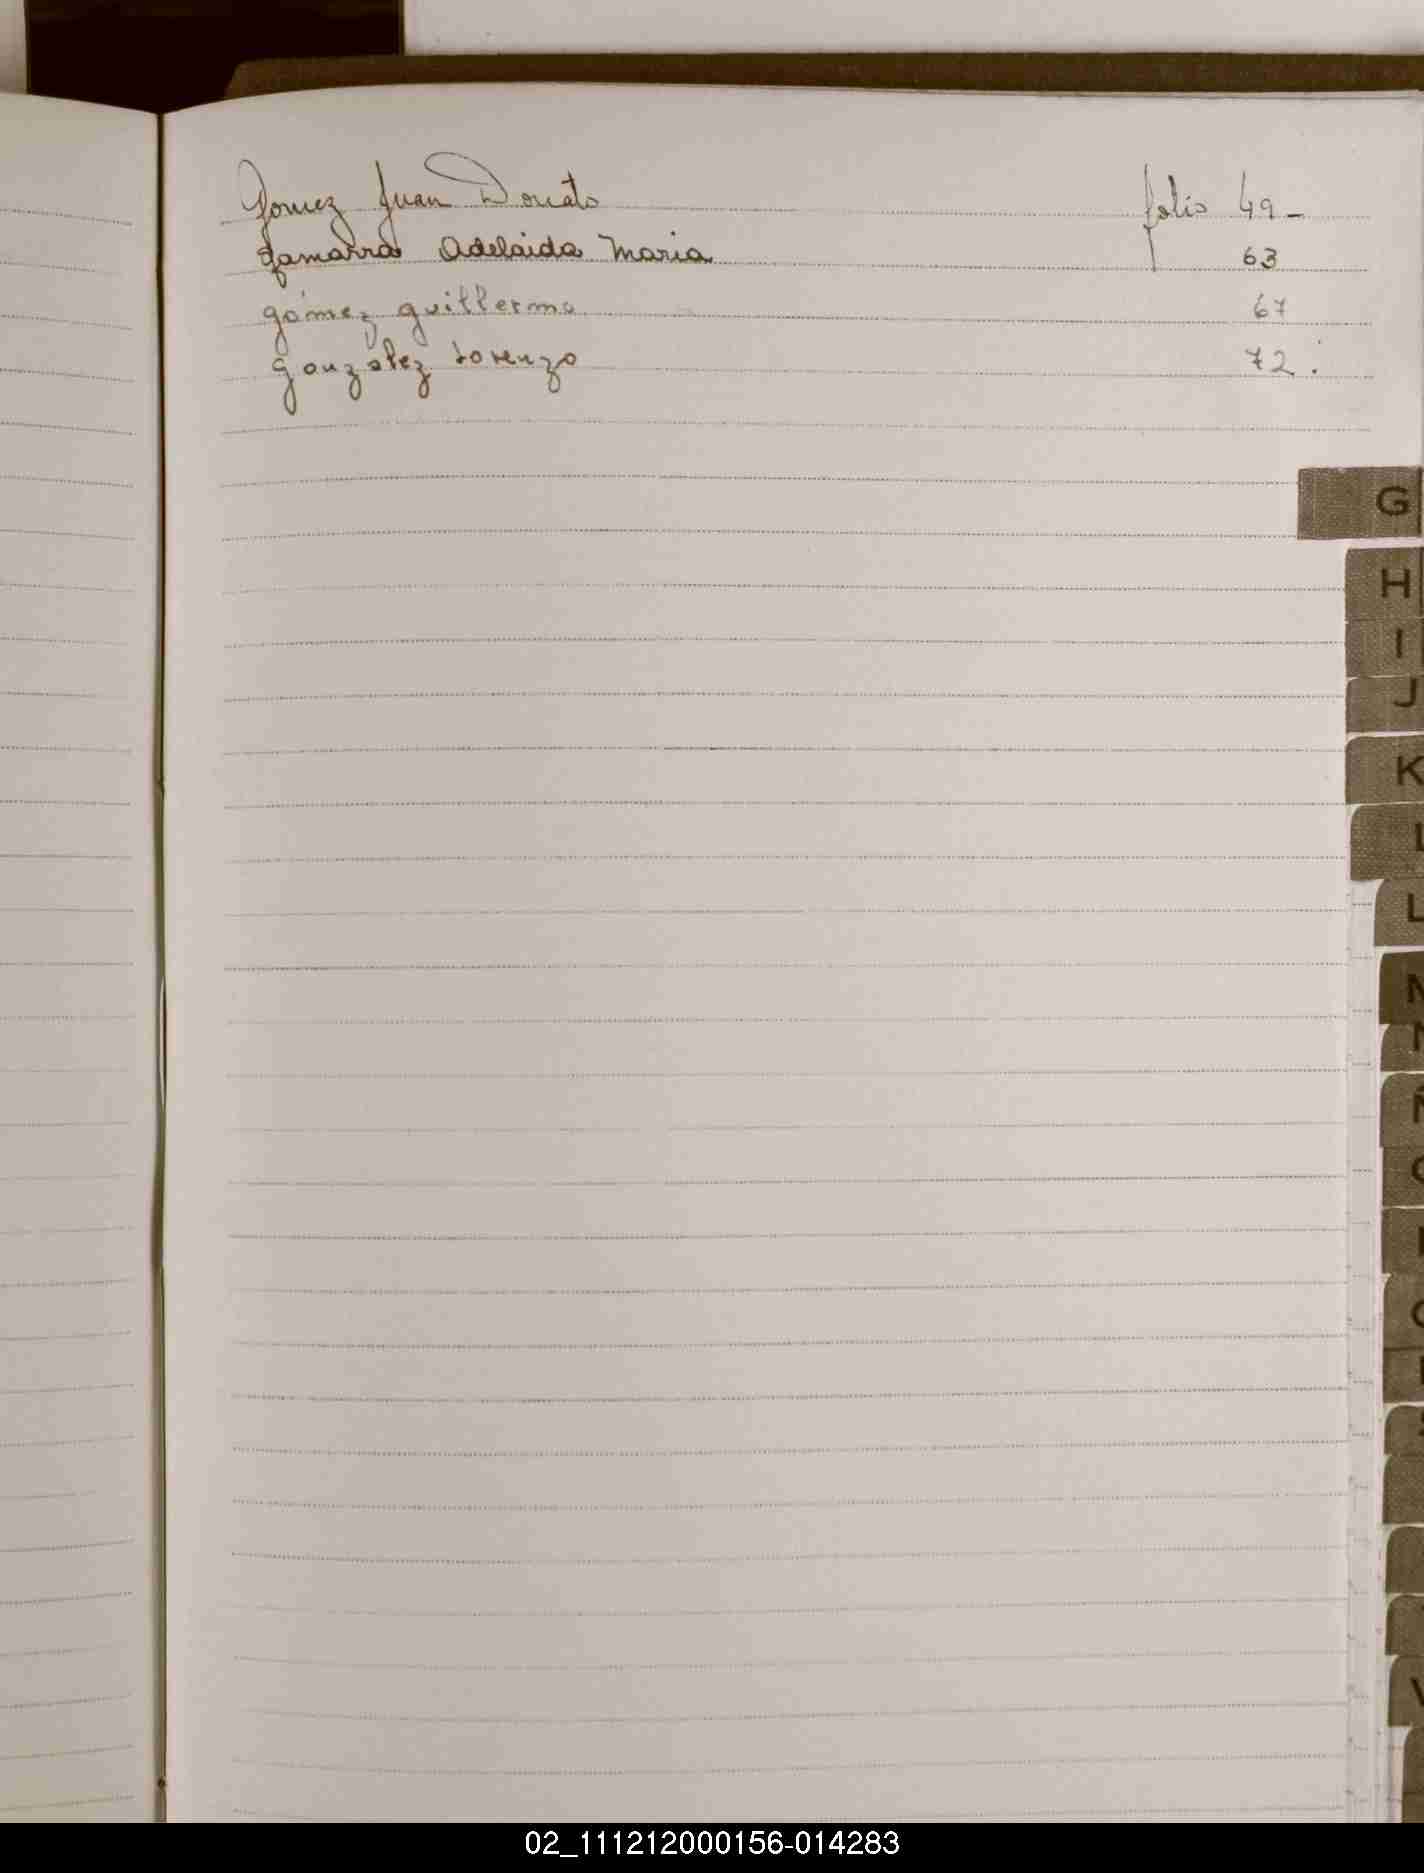 Gomez Juan Donato folio 49-
Gamarra Adelaida Maria 63
gómez guillermo 67
gonzalez Lorenzo 72.
G
H
I
J
K
L
L
N
Ñ
V
02_111212000156-014283